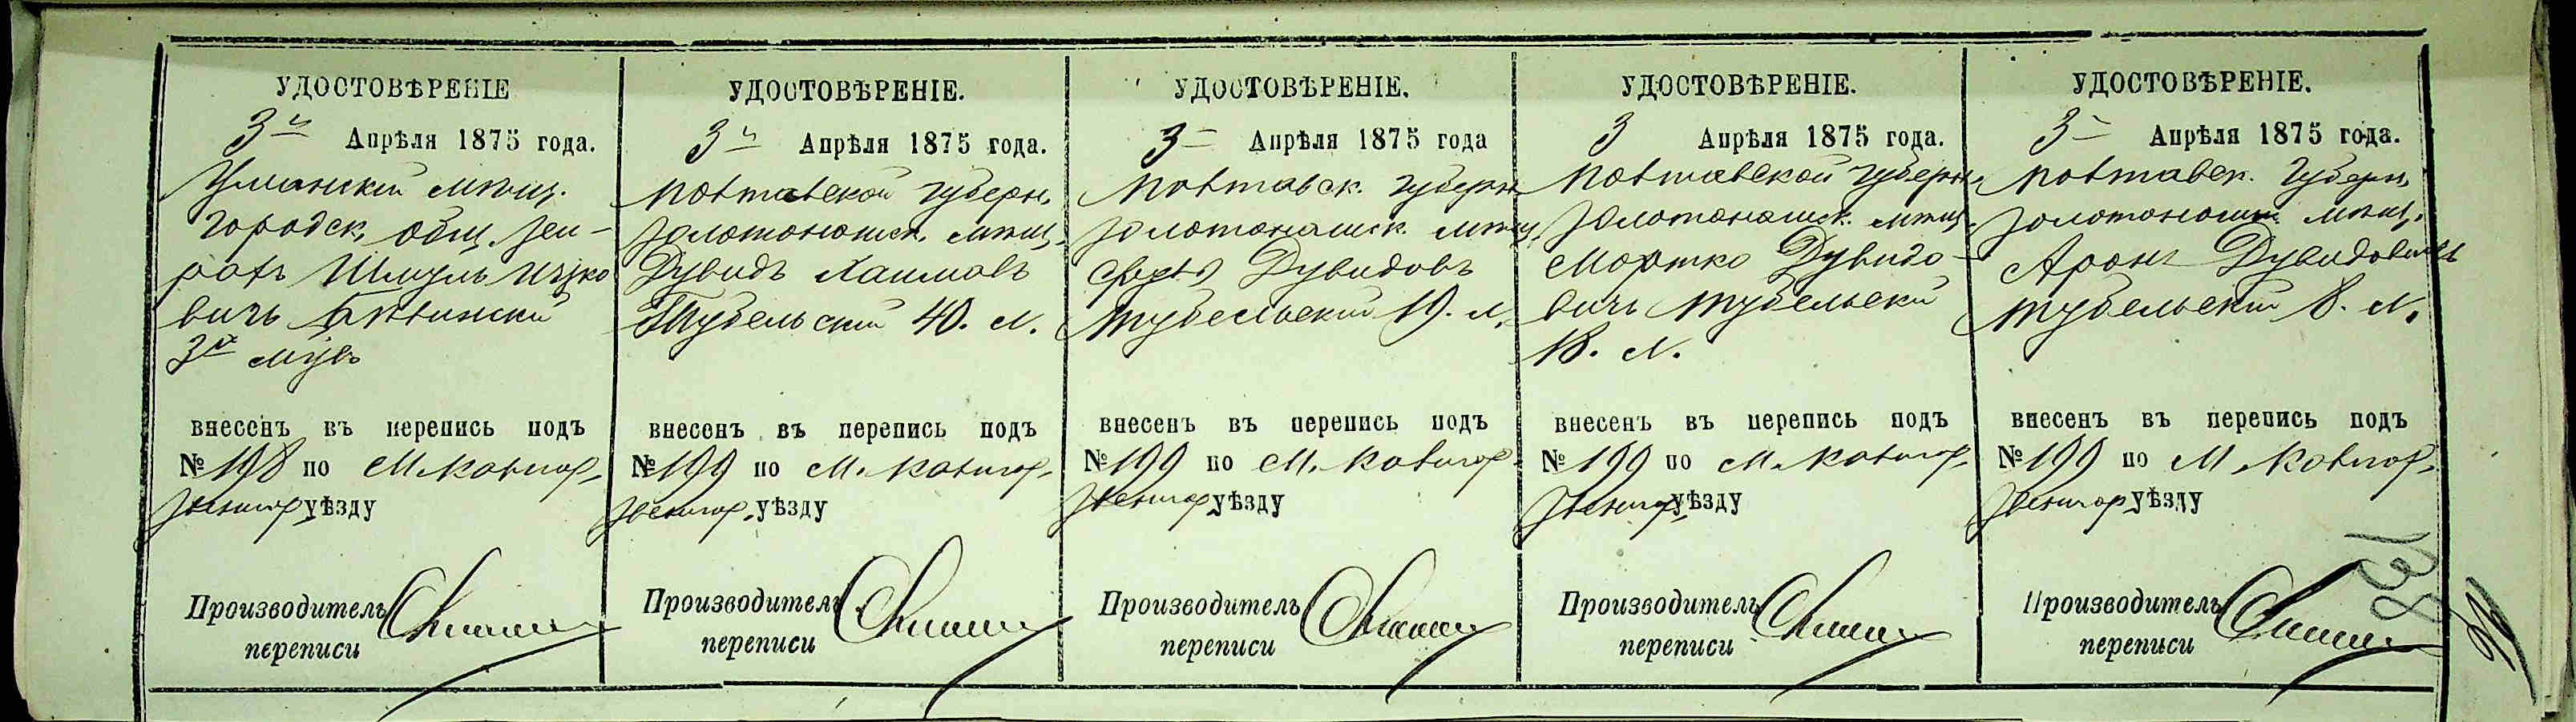 УДОСТОВѢРЕНІЕ
3го Апрѣля 1875 года.
Уманскій мѣщ.
городск. общ.
Шмуль Ицко
вичъ
внесенъ въ перепись подъ
№ 198 по М. Катыгор.
Звенигор. уѣзду
Производитель
переписи
УДОСТОВѢРЕНІЕ.
3го Апрѣля 1875 года.
Полтавской губерн.
Золотоношск. мѣщ.
Дувидъ Хаимовъ
Тубельскій 40. л.
внесенъ въ перепись подъ
№ 199 по М. Катыгор.
Звенигор. уѣзду
Производитель
переписи
УДОСТОВѢРЕНІЕ.
3 Апрѣля 1875 года
Полтавск. губерн
Золотоношск. мѣщ.
Дувидовъ
Тубельскій 19. л.
внесенъ въ перепись подъ
№ 199 по М. Катыгор.
Звенигор. уѣзду
Производитель
переписи
УДОСТОВѢРЕНІЕ.
3 Апрѣля 1875 года.
Полтавской губерн.
Золотоношск. мѣщ.
Мортко Дувидо-
вичъ Тубельскій
18. л.
внесенъ въ перепись подъ
№ 199 по М. Катыгор.
Звенигор. уѣзду
Производитель
переписи
УДОСТОВѢРЕНІЕ.
3 Апрѣля 1875 года.
Полтавск. губерн.
Золотоношск. мѣщ.
Аронъ Дувидовичъ
Тубельскій 8. л.
внесенъ въ перепись подъ
№ 199 по М. Катыгор.
Звенигор. уѣзду
Производитель
переписи
138